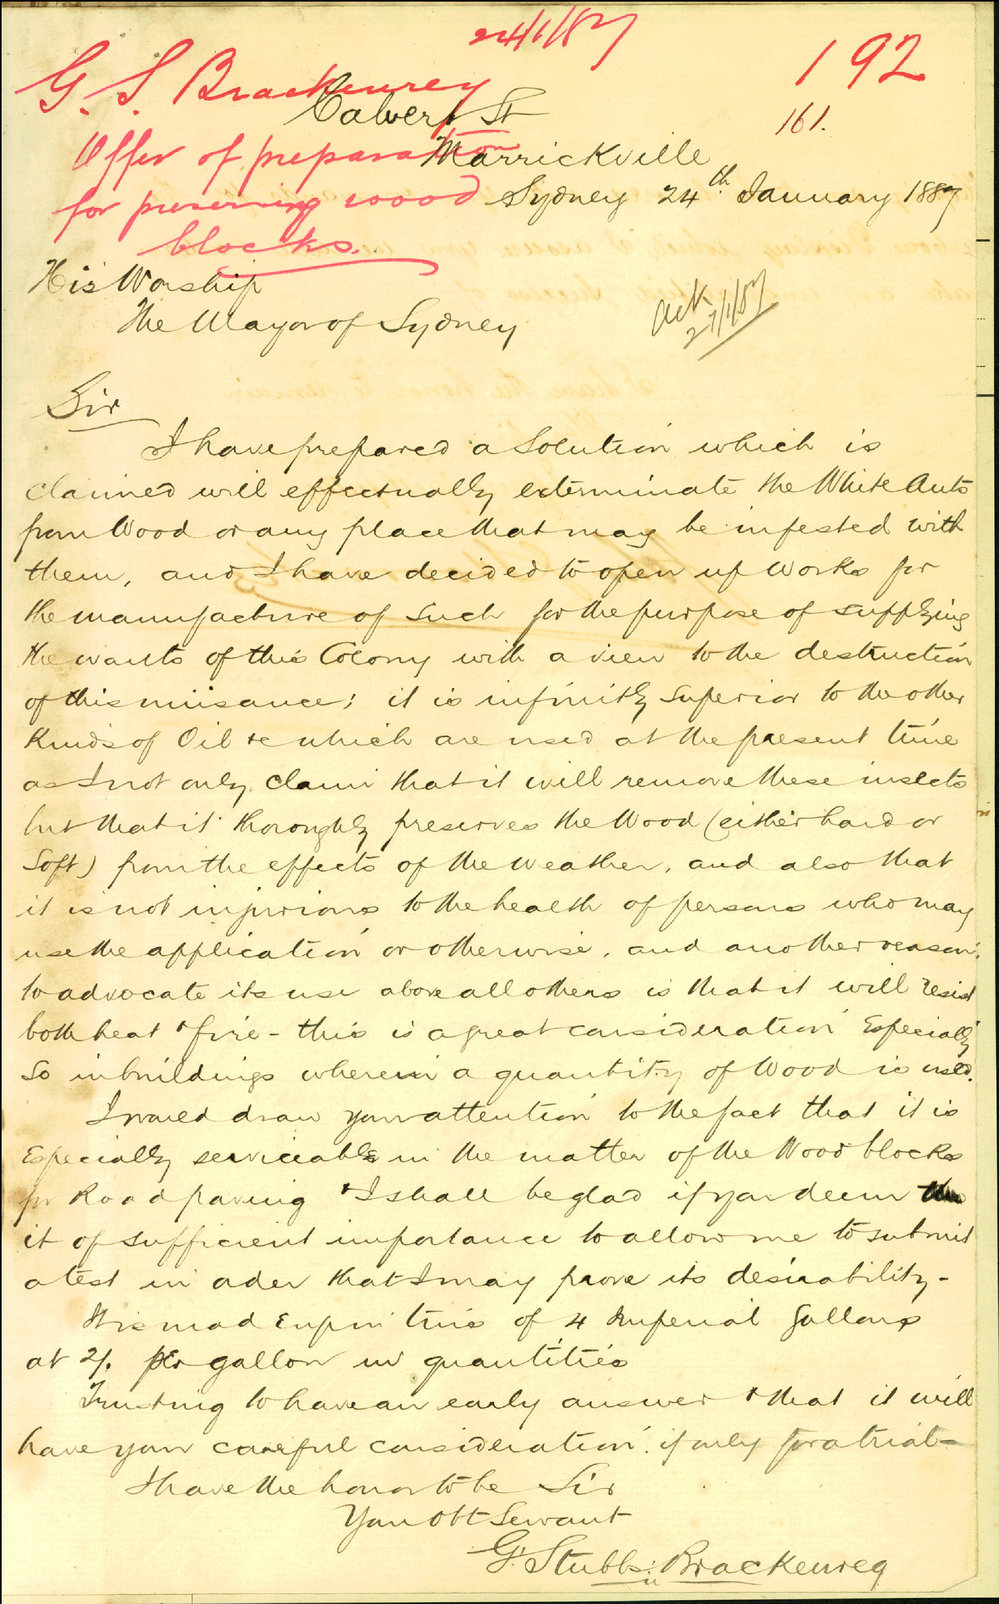 24/1/87
192
G. S. Brackenrey
161.
Calvert St
Offer of preparation
Marrickville
for preserving wood
Sydney 24th January 1887
blocks.
His Worship
The Mayor of Sydney
Ack
27/1/87
Sir
I have prepared a Solution which is
claimed will effectually exterminate the White Ants
from Wood or any place that may be infested with
them, and I have decided to open up Works for
the manufacture of such for the purpose of supplying
the wants of this Colony with a view to the destruction
of this nuisance; it is infinitly superior to the other
Kinds of Oil &c which are used at the present time
as I not only claim that it will remove these insects
but that it thoroughly preserves the Wood (either hard or
Soft) from the effects of the weather, and also that
it is not injurious to the health of persons who may
use the application or otherwise, and another reason
to advocate its use above all others is that it will resist
both heat & fire - this is a great consideration Especially
So in buildings wherein a quantity of Wood is used.
I would draw your attention to the fact that it is
Especially serviceable in the matter of the Wood blocks
for Road paving & I shall be glad if you deem
it of sufficient importance to allow me to submit
a test in order that I may prove its desirability -
It is mad Eup in tins of 4 Imperial Gallons
at 2/. per gallon in quantities
Trusting to have an early answer & that it will
have your careful consideration if only for a trial -
I have the honor to be Sir
Your Obt Servant
G. Stubbs Brackenreg